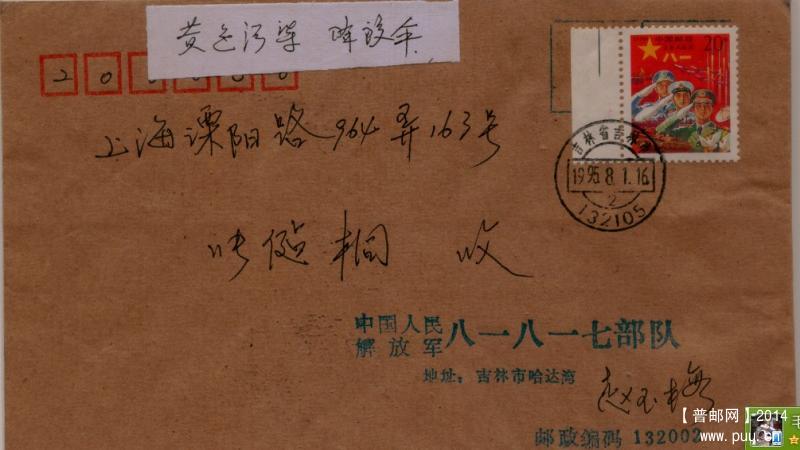 黄色污染 阵设车
200080
中国邮政
20分
八一
吉林省吉林市
1995.8.1.16
2
132105
上海溧阳路964弄163号
收
中国人民
解放军 八一八一七部队
地址：吉林市哈达湾
赵玉梅
邮政编码 132002
【普邮网】-2014
www.puy.cn
毛